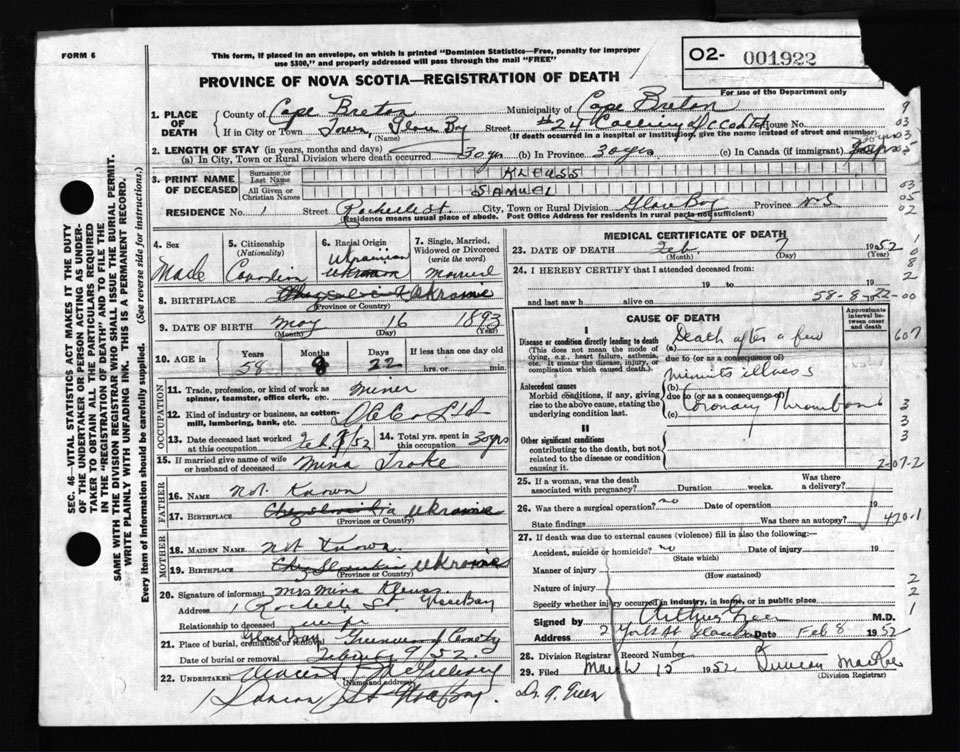 FORM 6
This form, if placed in an envelope, on which is printed "Dominion Statistics—Free, penalty for improper use $300," and properly addressed will pass through the mail "FREE"
02- 001922
For use of the Department only
PROVINCE OF NOVA SCOTIA—REGISTRATION OF DEATH
1. PLACE OF DEATH
County of Cape Breton Municipality of Cape Breton
If in City or Town Town, Glace Bay Street #24 Colliery House No.
(Name) (If death occurred in a hospital or institution, give the name instead of street and number)
2. LENGTH OF STAY (in years, months and days)
(a) In City, Town or Rural Division where death occurred 30 yrs (b) In Province 30 yrs (c) In Canada (if immigrant)
3. PRINT NAME OF DECEASED
Surname or Last Name KLEUSS
All Given or Christian Names SAMUEL
RESIDENCE No. 1 Street Rochelle St. City, Town or Rural Division Glace Bay Province N.S
(Residence means usual place of abode. Post Office Address for residents in rural parts not sufficient)
4. Sex Male
5. Citizenship (Nationality) Canadian
6. Racial Origin Ukrainian
7. Single, Married, Widowed or Divorced (write the word) Married
8. BIRTHPLACE Ukranie
(Province or Country)
9. DATE OF BIRTH May 16 1893
(Month) (Day) (Year)
10. AGE in Years 58 Months 8 Days 22 If less than one day old hrs. or min.
OCCUPATION
11. Trade, profession, or kind of work as spinner, teamster, office clerk, etc. Miner
12. Kind of industry or business, as cotton-mill, lumbering, bank, etc. Co Ltd
13. Date deceased last worked at this occupation Feb /52
14. Total yrs. spent in this occupation 30 yrs
15. If married give name of wife or husband of deceased Mina Troke
FATHER
16. NAME Not Known
17. BIRTHPLACE Ukranie
(Province or Country)
MOTHER
18. MAIDEN NAME Not Known
19. BIRTHPLACE Ukranie
(Province or Country)
20. Signature of informant Mrs Mina Kleuss
Address 1 Rochelle St. Glace Bay
Relationship to deceased wife
21. Place of burial, cremation or removal Glace Bay Greenwood Cemetry
Date of burial or removal February 9/52
22. UNDERTAKER
(Name and address)
MEDICAL CERTIFICATE OF DEATH
23. DATE OF DEATH Feb. 7 1952
(Month) (Day) (Year)
24. I HEREBY CERTIFY that I attended deceased from:
19 to 19
and last saw h alive on 19
58-8-22-00
CAUSE OF DEATH
Approximate interval between onset and death
I
Disease or condition directly leading to death
(This does not mean the mode of dying, e.g., heart failure, asthenia, etc. It means the disease, injury, or complication which caused death.)
(a) Death after a few
due to (or as a consequence of)
minutes illness
Antecedent causes
Morbid conditions, if any, giving rise to the above cause, stating the underlying condition last.
(b)
due to (or as a consequence of)
(c) Coronary Thrombosis
II
Other significant conditions contributing to the death, but not related to the disease or condition causing it.
607
3
3
3
2-07-2
25. If a woman, was the death associated with pregnancy? Duration weeks. Was there a delivery?
26. Was there a surgical operation? no Date of operation 19
State findings Was there an autopsy?
420.1
27. If death was due to external causes (violence) fill in also the following:—
Accident, suicide or homicide? no Date of injury 19
(State which)
Manner of injury
(How sustained)
Nature of injury
Specify whether injury occurred in industry, in home, or in public place
Signed by Arthur Green M.D.
Address 2 York St Glace Bay Date Feb 8 1952
28. Division Registrar Record Number
29. Filed March 15 1952
(Division Registrar)
SEC. 46—VITAL STATISTICS ACT MAKES IT THE DUTY OF THE UNDERTAKER OR PERSON ACTING AS UNDERTAKER TO OBTAIN ALL THE PARTICULARS REQUIRED IN THE "REGISTRATION OF DEATH" AND TO FILE THE SAME WITH THE DIVISION REGISTRAR WHO SHALL ISSUE THE BURIAL PERMIT.
WRITE PLAINLY WITH UNFADING INK. THIS IS A PERMANENT RECORD.
Every item of information should be carefully supplied. (See reverse side for instructions.)